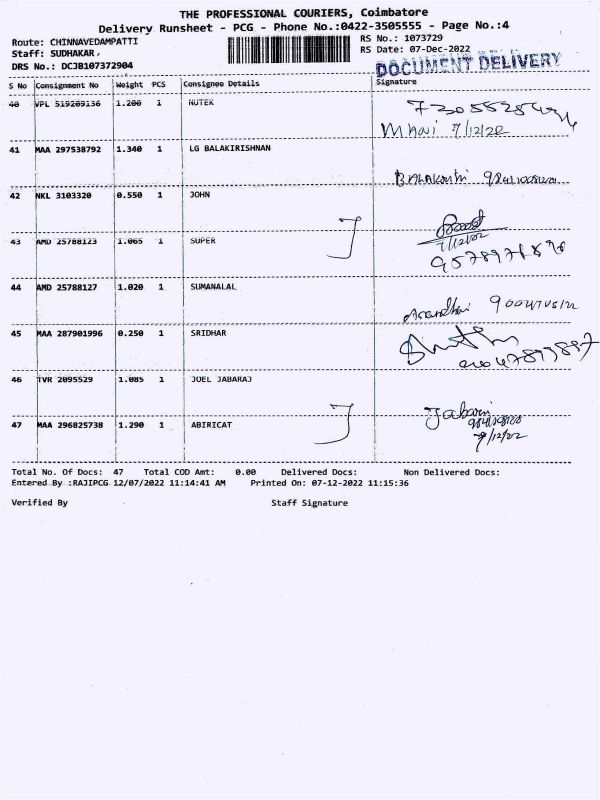 THE PROFESSIONAL COURIERS, Coimbatore
Delivery Runsheet - PCG - Phone No.:0422-3505555 - Page No.:4
Route: CHINNAVEDAMPATTI
RS No.: 1073729
Staff: SUDHAKAR
RS Date: 07-Dec-2022
DRS No.: DCJB107372904
DOCUMENT DELIVERY
S No Consignment No Weight PCS Consignee Details Signature
40 VPL 519209136 1.200 1 NUTEK
Mhavi 7/12/22
41 MAA 297538792 1.340 1 LG BALAKIRISHNAN
42 NKL 3103320 0.550 1 JOHN
7/12/22
43 AMD 25788123 1.065 1 SUPER
44 AMD 25788127 1.020 1 SUMANALAL
45 MAA 287901996 0.250 1 SRIDHAR
46 TVR 2095529 1.085 1 JOEL JABARAJ
47 MAA 296825738 1.290 1 ABIRICAT
7/12/22
Total No. Of Docs: 47 Total COD Amt: 0.00 Delivered Docs: Non Delivered Docs:
Entered By :RAJIPCG 12/07/2022 11:14:41 AM Printed On: 07-12-2022 11:15:36
Verified By Staff Signature